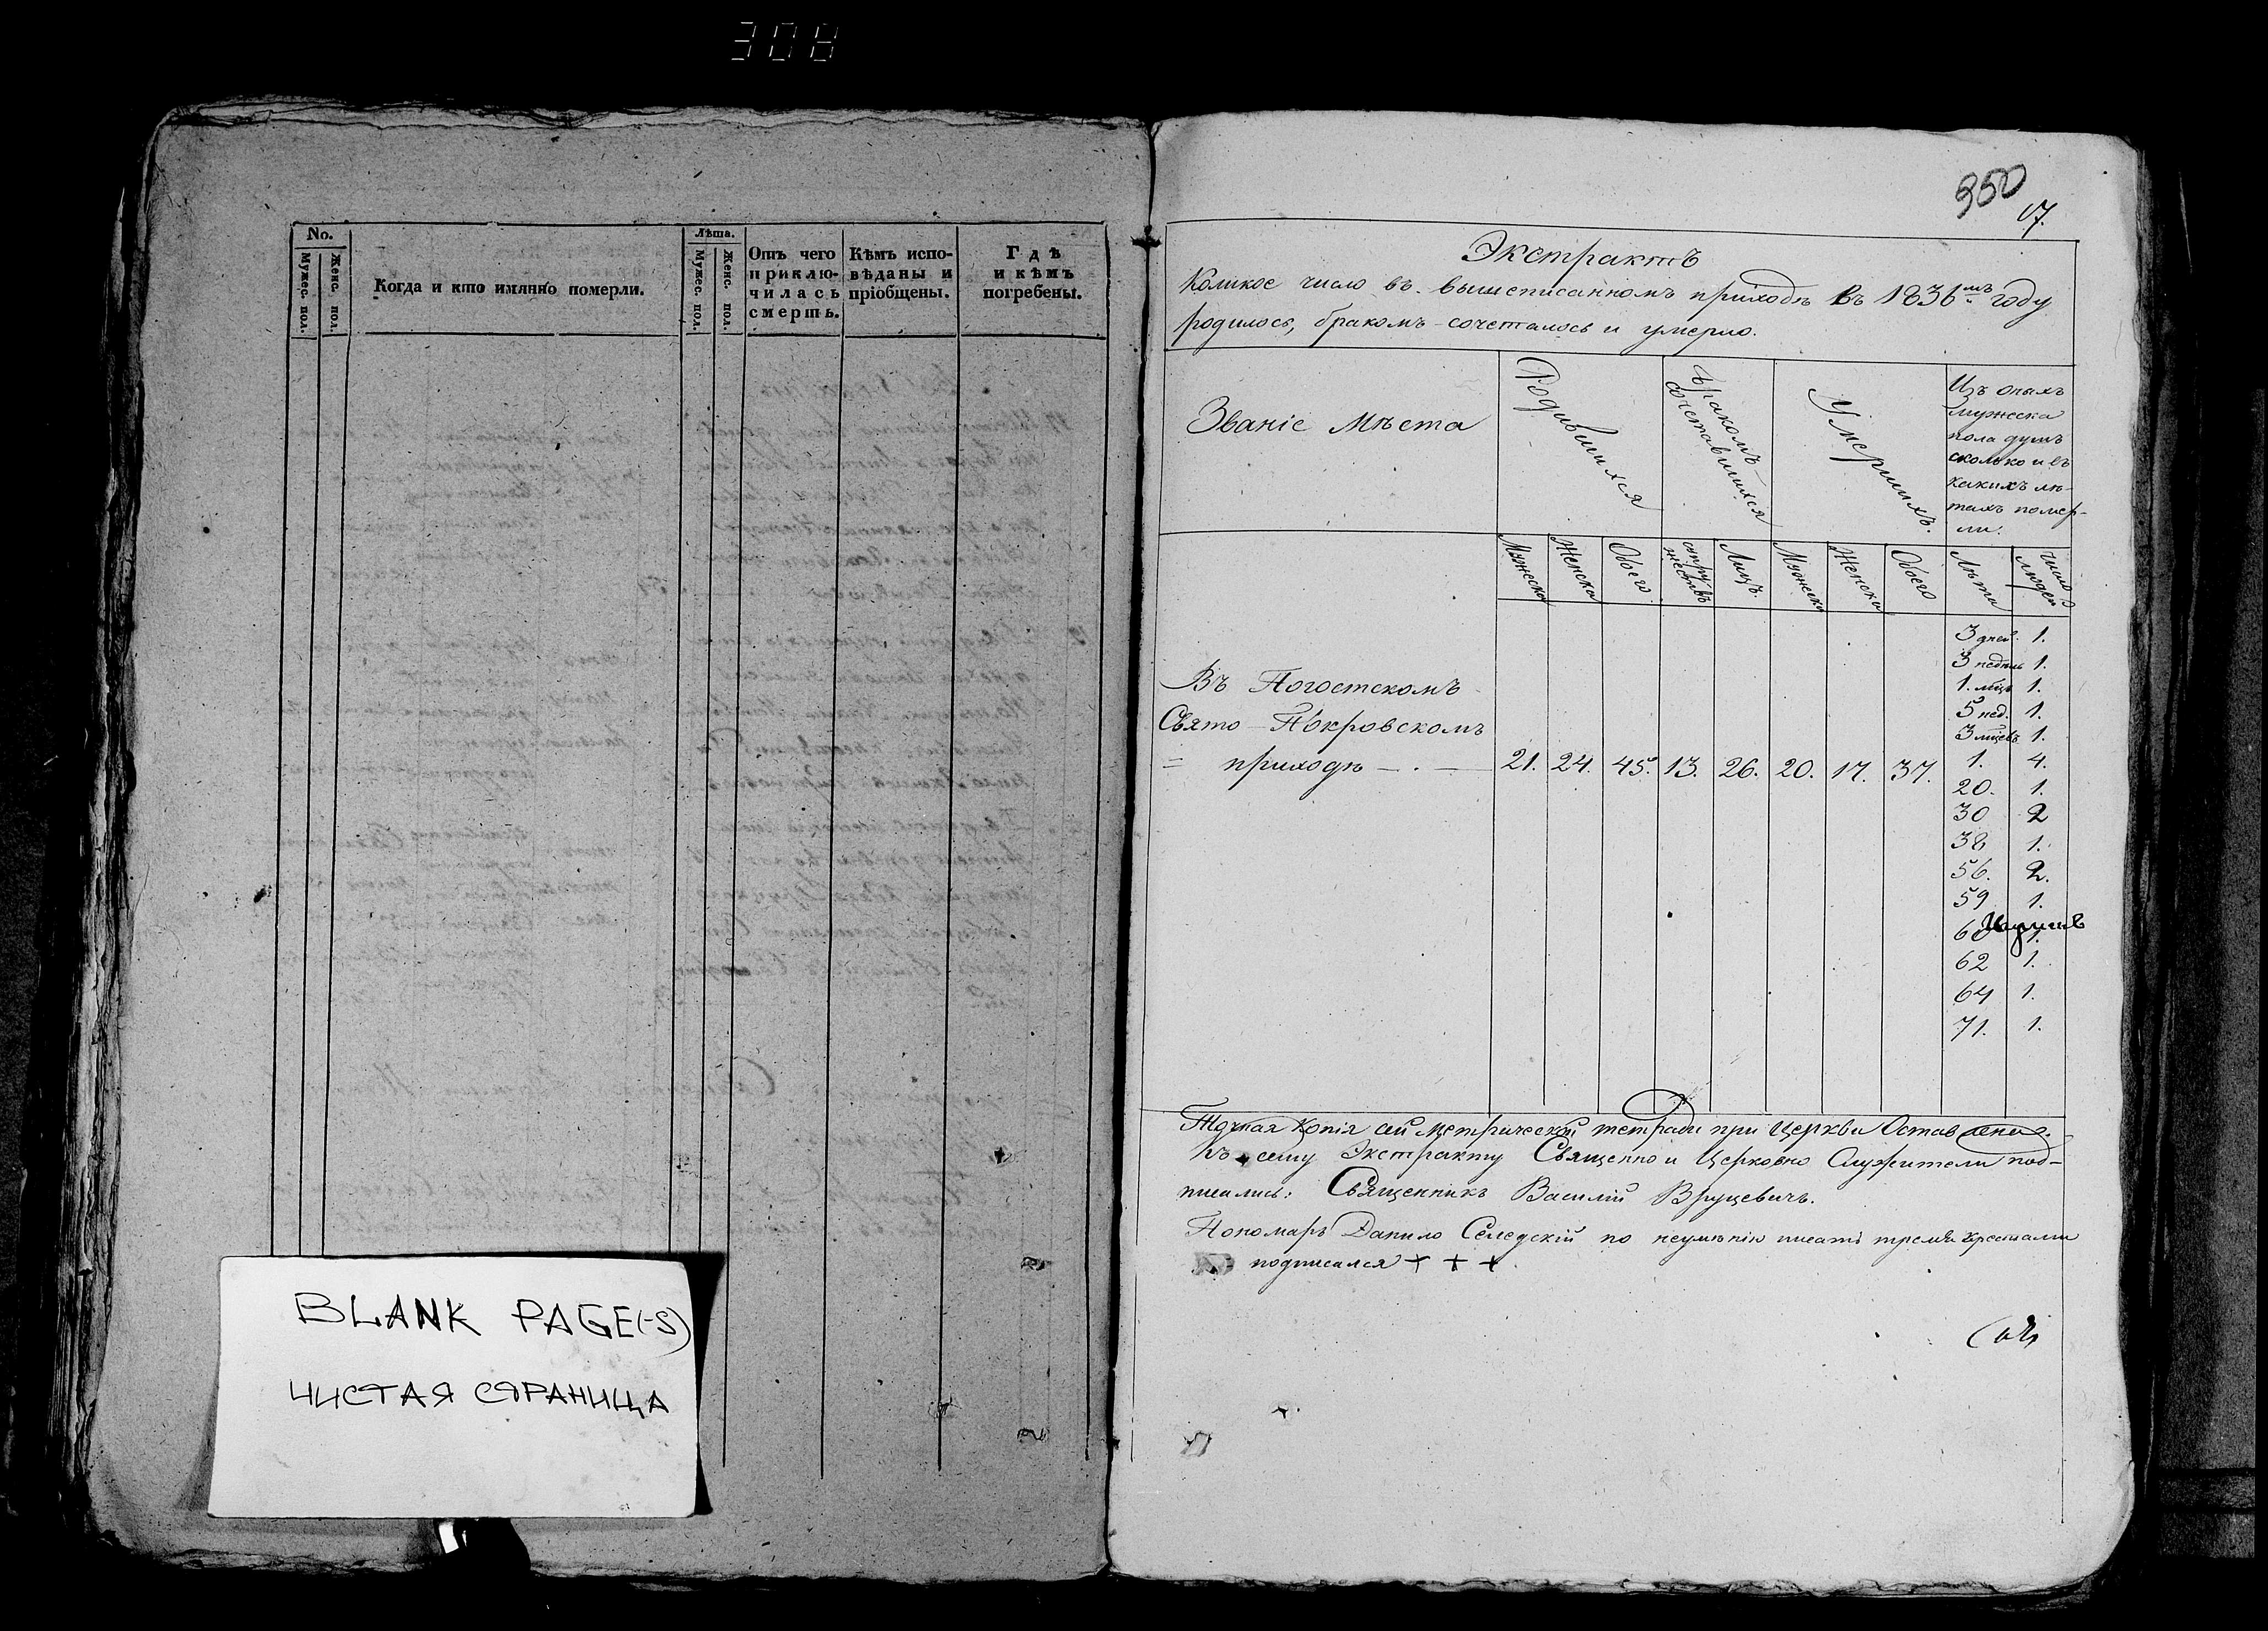 308
No.
Мужес. пол.
Женс. пол.
Когда и кто имянно померли.
Лѣта.
Мужес. пол.
Женс. пол.
Отъ чего приклю-
чилась
смерть.
Кѣмъ испо-
вѣданы и
пріобщены.
Гдѣ
и кѣмъ
погребены.
BLANK PAGE(-S)
ЧИСТАЯ СТРАНИЦА
350
17.
Экстрактъ
Коликое число въ вышеписанномъ приходѣ въ 1836мъ году
родилось, бракомъ сочеталось и умерло.
Званіе Мѣста
Родившихся
Бракомъ
сочетавшихся
Умершихъ
Изъ оныхъ
мужеска
пола душъ
сколько и въ
какихъ лѣ-
тахъ помер-
ли.
Мужеска
Женска
Обоего
супру-
жествъ
Лицъ.
Мужеска
Женска
Обоего
Лѣта
Число
людей
3 дней. 1.
3 недѣль 1.
1. мцъ 1.
5 нед. 1.
3 мцевъ 1.
Въ Погостскомъ
Свято-Покровскомъ
= приходѣ — . — 21. 24. 45. 13. 26. 20. 17. 37. 1. 4.
20. 1.
30 2
38 1.
56. 2.
59 1.
60 1.
62 1.
64 1.
71. 1.
Точная Копія сей Метрической тетради при Церкви Оставлена.
Къ сему Экстракту Священно и Церковно Служители под-
писались: Священникъ Василій Вруцевичъ.
Пономарь Данило Селедскій по неумѣнію писать тремя крестами
подписался + + +